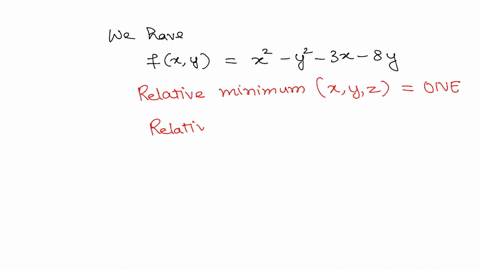 We have
f(x,y) = x² - y² - 3x - 8y
Relative minimum (x,y,z) = ONE
Relativ